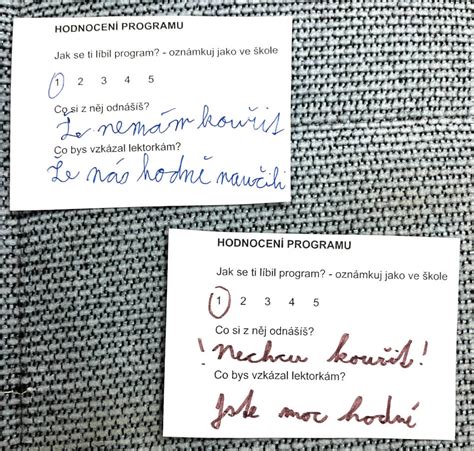 HODNOCENÍ PROGRAMU
Jak se ti líbil program? - oznámkuj jako ve škole
1 2 3 4 5
Co si z něj odnášíš?
Že nemám kouřit
Co bys vzkázal lektorkám?
Že nás hodně naučili
HODNOCENÍ PROGRAMU
Jak se ti líbil program? - oznámkuj jako ve škole
1 2 3 4 5
Co si z něj odnášíš?
! Nechcu kouřit!
Co bys vzkázal lektorkám?
Jste moc hodné